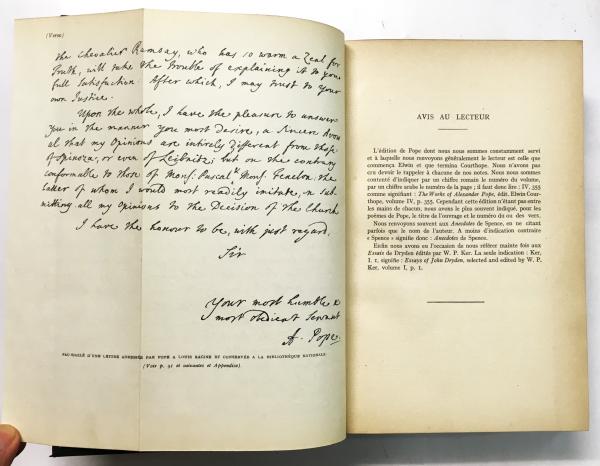 (Verso)
the Chevalier Ramsay, who has so warm a Zeal for
Truth, will take the Trouble of explaining it to your
full Satisfaction. After which, I may trust to your
own Justice.
Upon the whole, I have the pleasure to answer
you in the manner you most desire, a Sincere Avow
al that my Opinions are intirely different from those
of Spinoza, or even of Leibnitz; but on the contrary
conformable to those of Mons. Pascal & Mons. Fenelon: the
latter of whom I would most readily imitate, in sub-
mitting all my Opinions to the Decision of the Church
I have the honour to be, with just regard.
Sir
Your most humble &
most obedient Servant
A. Pope.
FAC-SIMILÉ D'UNE LETTRE ADRESSÉE PAR POPE A LOUIS RACINE ET CONSERVÉE A LA BIBLIOTHÈQUE NATIONALE.
(Voir p. 91 et suivantes et Appendice).
AVIS AU LECTEUR
L'édition de Pope dont nous nous sommes constamment servi
et à laquelle nous renvoyons généralement le lecteur est celle que
commença Elwin et que termina Courthope. Nous n'avons pas
cru devoir le rappeler à chacune de nos notes. Nous nous sommes
contenté d'indiquer par un chiffre romain le numéro du volume,
par un chiffre arabe le numéro de la page; il faut donc lire : IV. 355
comme signifiant : The Works of Alexander Pope, édit. Elwin-Cour-
thope, volume IV, p. 355. Cependant cette édition n'étant pas entre
les mains de chacun, nous avons le plus souvent indiqué, pour les
poèmes de Pope, le titre de l'ouvrage et le numéro du ou des vers.
Nous renvoyons souvent aux Anecdotes de Spence, en ne citant
parfois que le nom de l'auteur. A moins d'indication contraire
« Spence » signifie donc : Anecdotes de Spence.
Enfin nous avons eu l'occasion de nous référer mainte fois aux
Essais de Dryden édités par W. P. Ker. La seule indication : Ker,
I. 1. signifie : Essays of John Dryden, selected and edited by W. P.
Ker, volume I, p. 1.